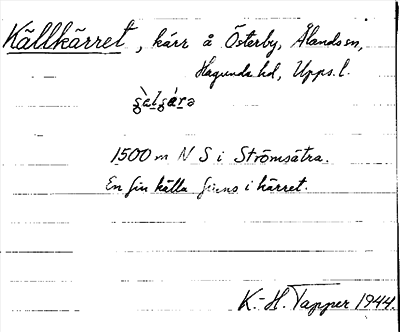 Källkärret, kärr å Österby, Ålands sn,
Hagunda hd, Upps. l.
1500 m N S i Strömsätra.
En fin källa finns i kärret.
K.-H. Tapper 1944.